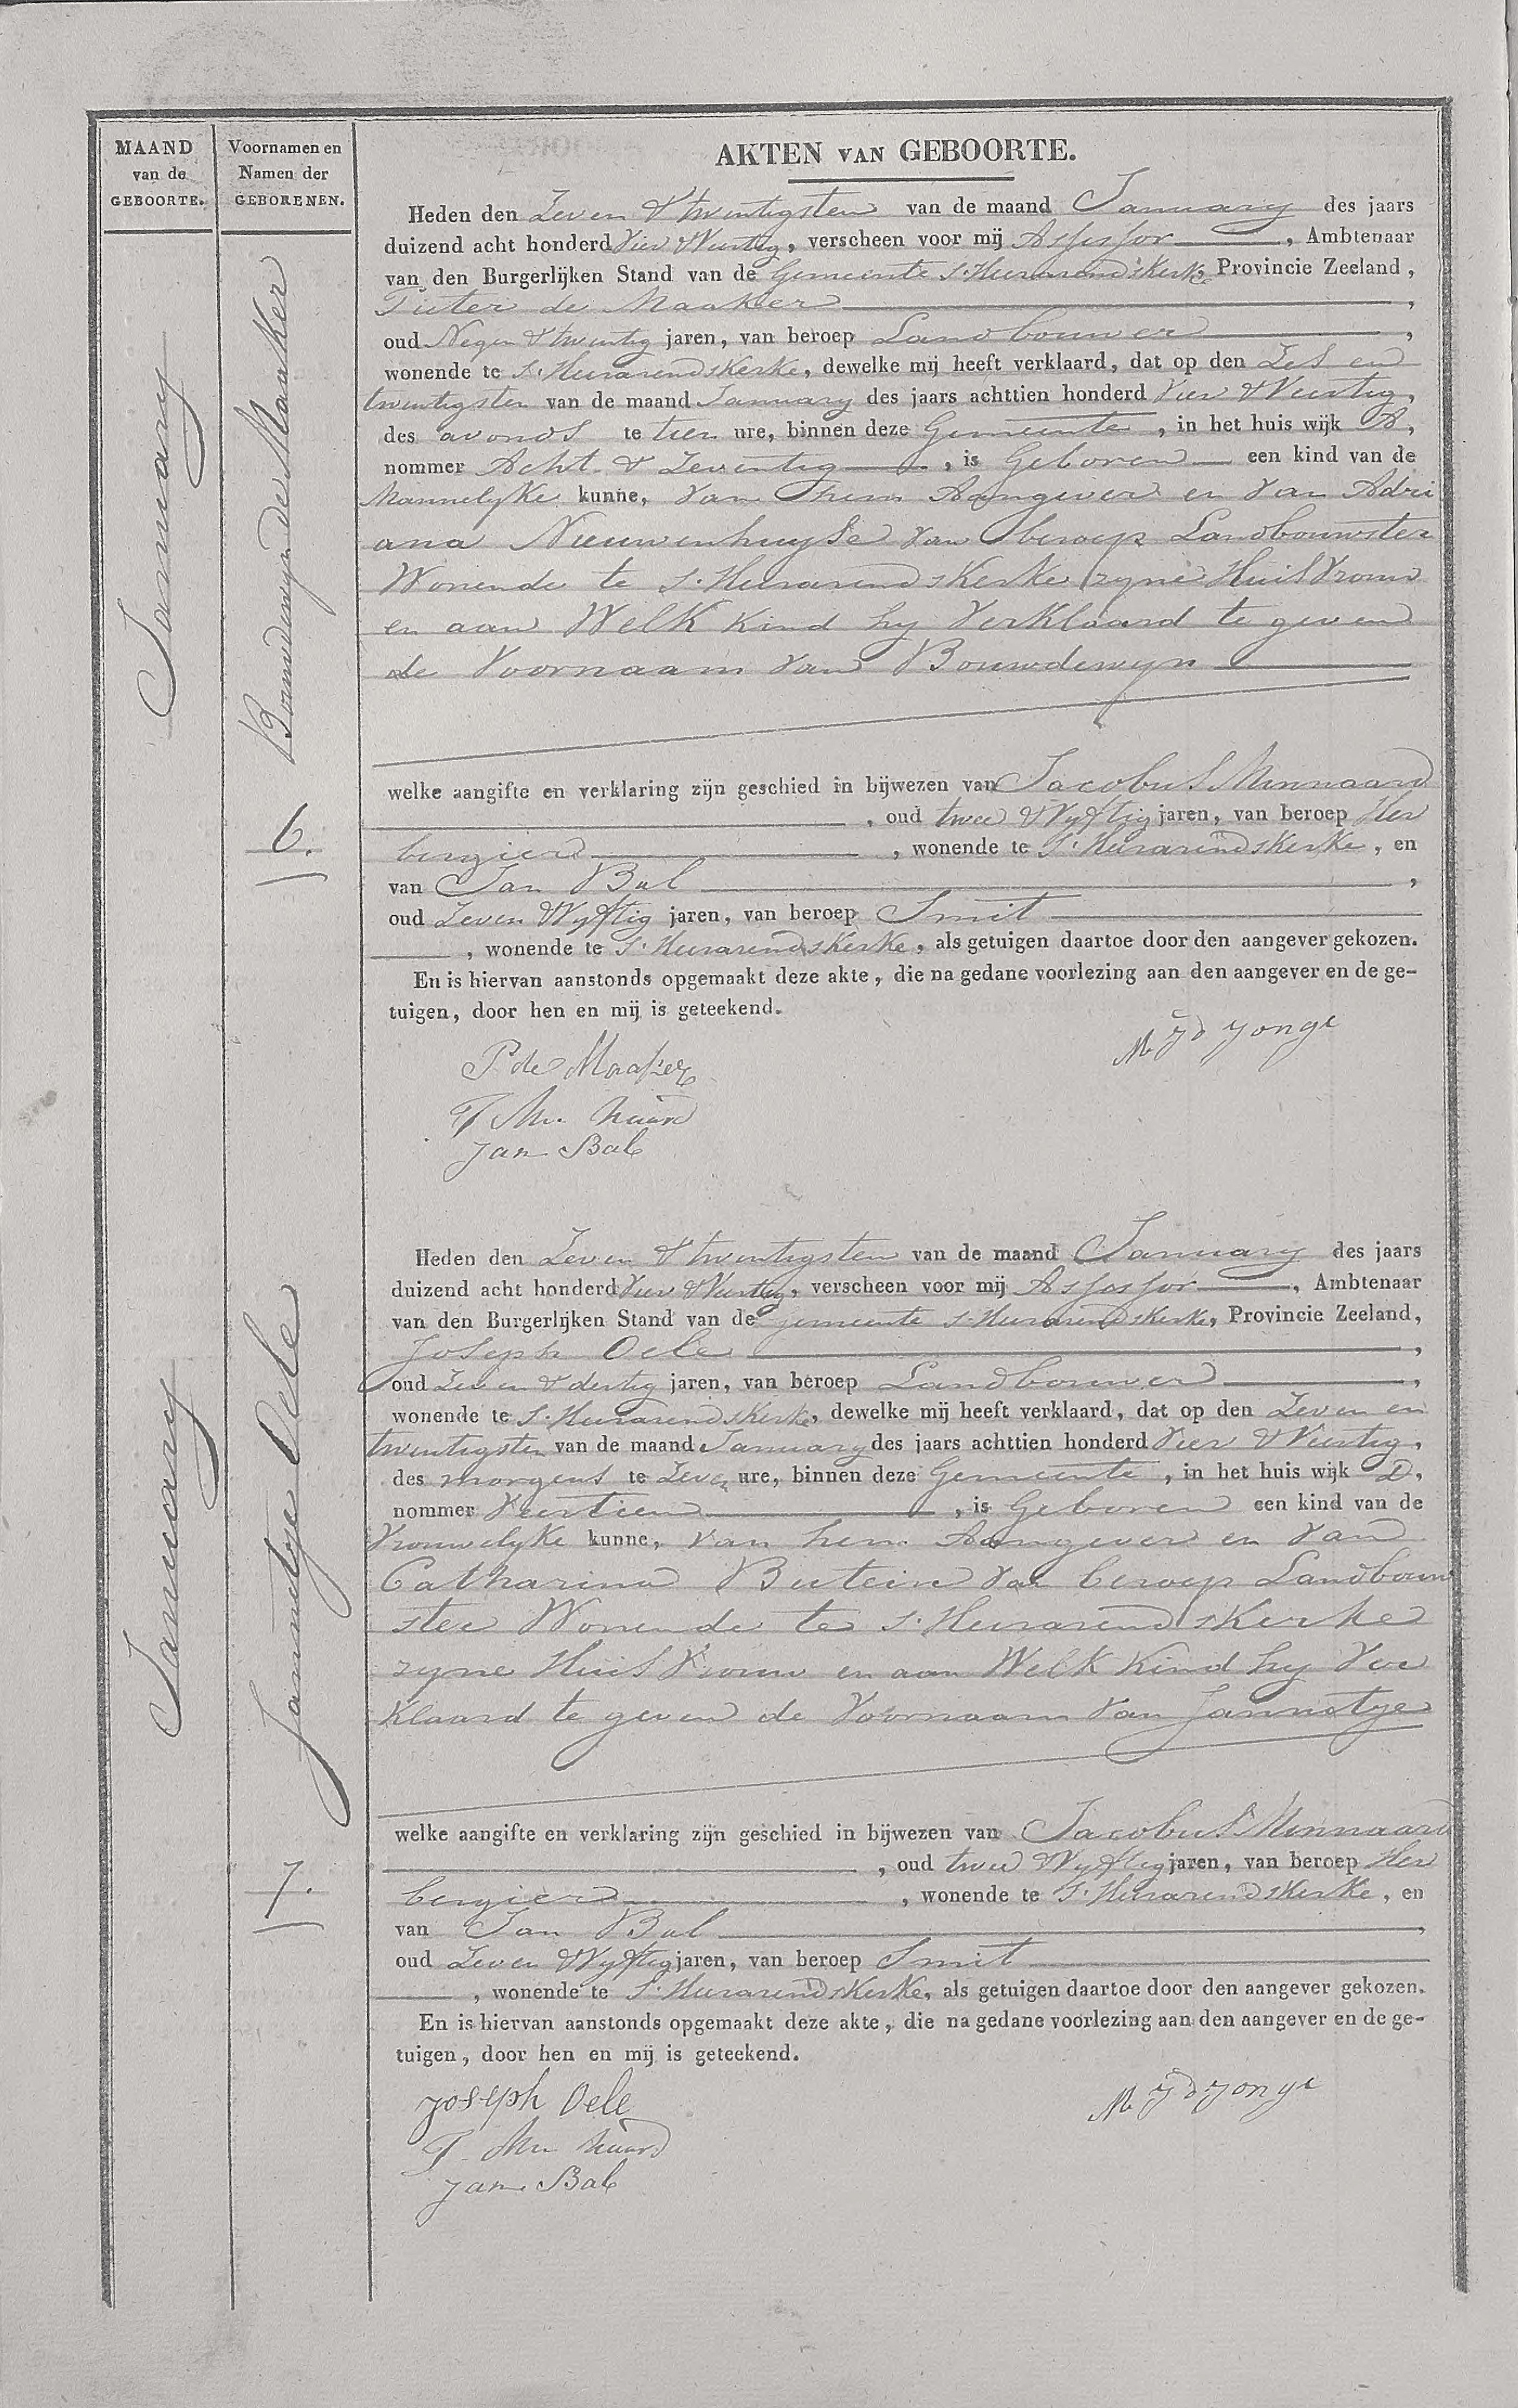 MAAND
van de
GEBOORTE.
Voornamen en
Namen der
GEBORENEN.
AKTEN VAN GEBOORTE.
January
Bouwdewyn de Maaker
6.
Heden den Zeven & twintigsten van de maand January des jaars
duizend acht honderd Vier & Veertig, verscheen voor mij Assessor, Ambtenaar
van den Burgerlijken Stand van de Gemeente S. Heerarendskerke Provincie Zeeland,
Pieter de Maaker,
oud Negen & twintig jaren, van beroep Landbouwer,
wonende te S. Heerarendskerke, dewelke mij heeft verklaard, dat op den Zes en
twintigsten van de maand January des jaars achttien honderd Vier & Veertig,
des avonds te tien ure, binnen deze Gemeente, in het huis wijk
nommer Acht & Zeventig, is Geboren een kind van de
Mannelyke kunne, van hem Aangever en van Adri
ana Nieuwenhuyse van beroep Landbouwster
Wonende te S. Heerarendskerke zyne Huisvrouw
en aan Welk kind hy Verklaard te geven
de Voornaam van Bouwdewyn
welke aangifte en verklaring zijn geschied in bijwezen van Jacobus Minnaard
, oud twee & Vyftig jaren, van beroep Her
bergier, wonende te S. Heerarendskerke, en
van Jan Bal,
oud Zeven & Vyftig jaren, van beroep Smit
, wonende te S. Heerarendskerke, als getuigen daartoe door den aangever gekozen.
En is hiervan aanstonds opgemaakt deze akte, die na gedane voorlezing aan den aangever en de ge-
tuigen, door hen en mij is geteekend.
P. de Maaker
M Jd Jonge
J Minnaard
Jan Bal
January
Jannetje Oele
7.
Heden den Zeven & twintigsten van de maand January des jaars
duizend acht honderd Vier & Veertig, verscheen voor mij Assessor, Ambtenaar
van den Burgerlijken Stand van de gemeente S. Heerarendskerke, Provincie Zeeland,
Joseph Oele,
oud Zeven & dertig jaren, van beroep Landbouwer,
wonende te S. Heerarendskerke, dewelke mij heeft verklaard, dat op den Zeven en
twintigsten van de maand January des jaars achttien honderd Vier & Veertig,
des morgens te Zeven ure, binnen deze Gemeente, in het huis wijk D,
nommer Veertien, is Geboren een kind van de
Vrouwelyke kunne, van hem Aangever en van
Catharina Butein van beroep Landbouw
ster Wonende te S. Heerarendskerke
zyne Huisvrouw en aan Welk Kind hy Ver
Klaard te geven de Voornaam van Jannetje
welke aangifte en verklaring zijn geschied in bijwezen van Jacobus Minnaard
, oud twee & Vyftig jaren, van beroep Her
bergier, wonende te S. Heerarendskerke, en
van Jan Bal,
oud Zeven & Vyftig jaren, van beroep Smit
, wonende te S. Heerarendskerke, als getuigen daartoe door den aangever gekozen.
En is hiervan aanstonds opgemaakt deze akte, die na gedane voorlezing aan den aangever en de ge-
tuigen, door hen en mij is geteekend.
Joseph Oele
M Jd Jonge
J. Minnaard
Jan Bal